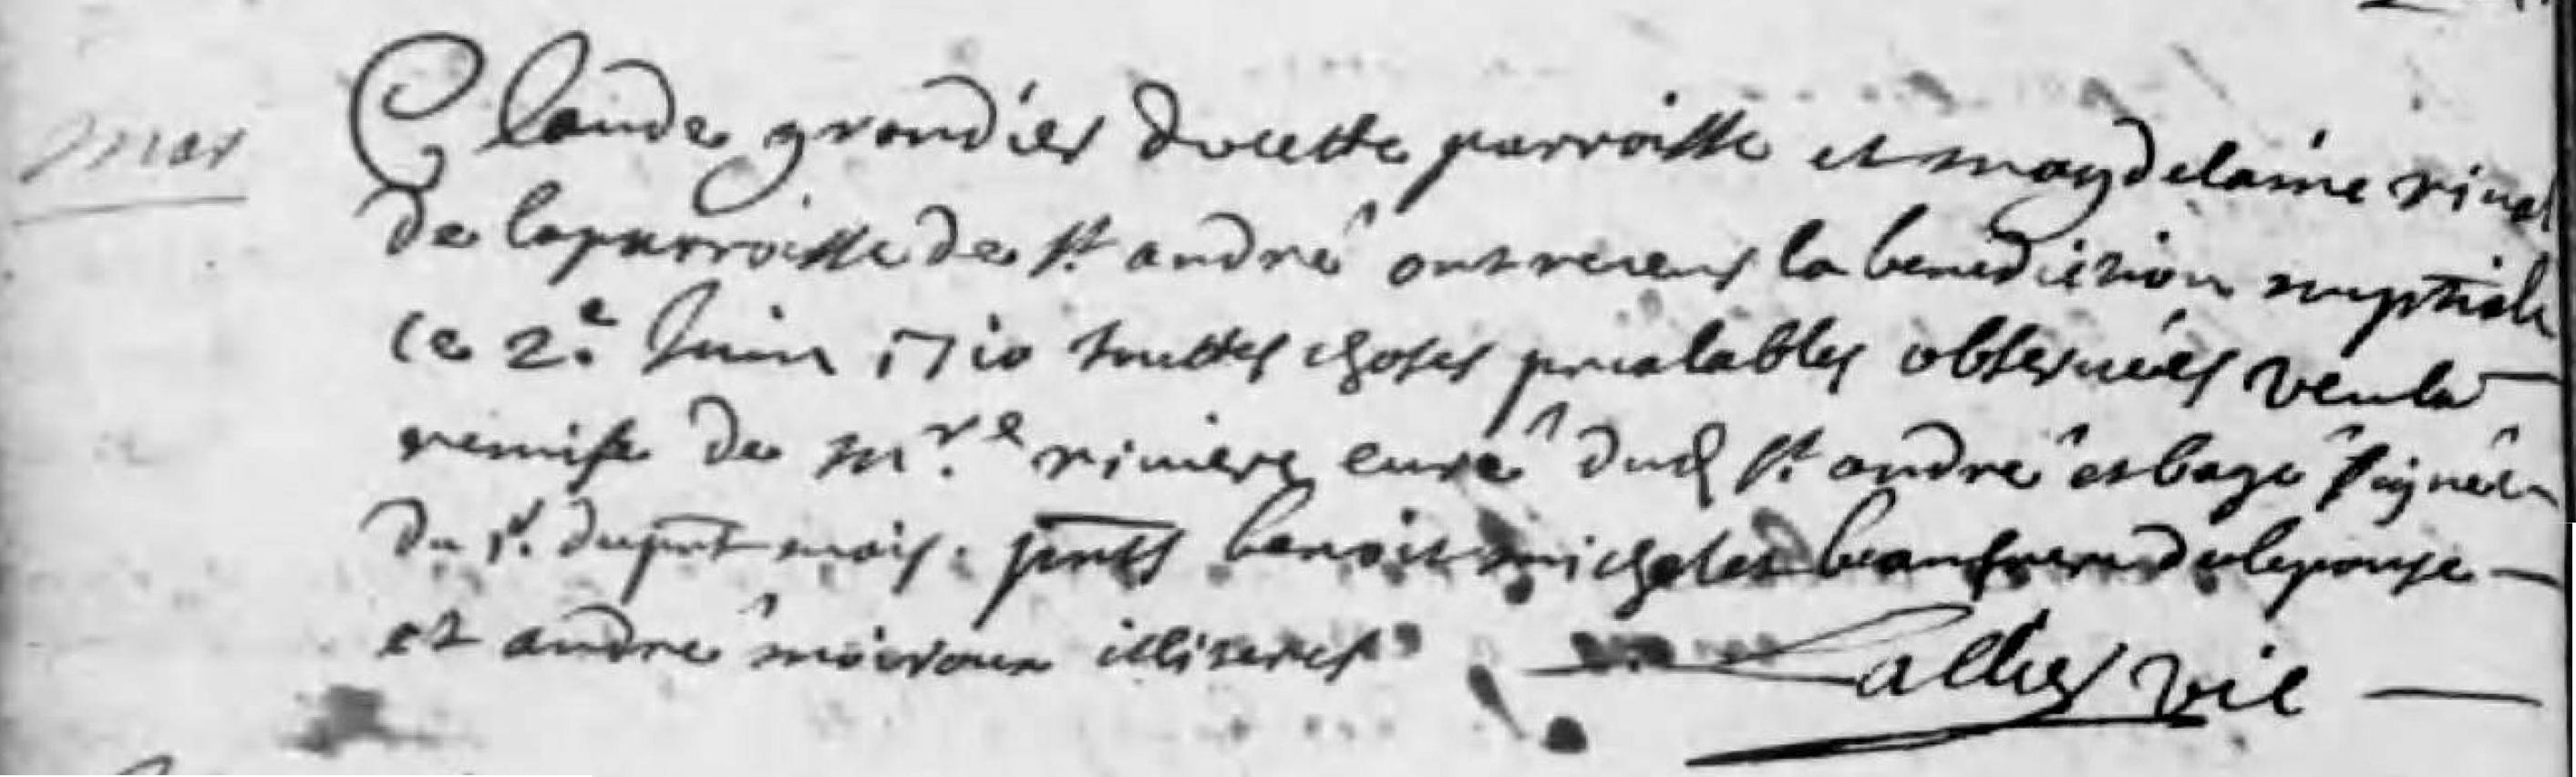 mar
Claude grandier de cette parroisse et magdelaine rival
de la parroisse de st andré ont receus la benediction nuptiale
ce 2e Juin 1710 touttes choses prealables observées veu la
remise de mre riviere curé dud st andré signée
du 1r du pnt mois. pnts benoit beaufrere de lepouse
et andré illiterés